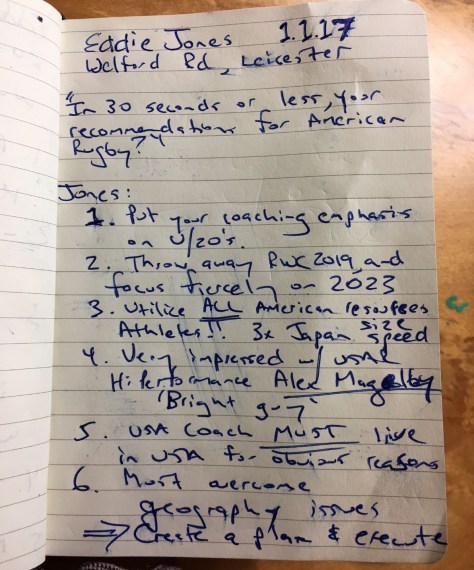 Eddie Jones 1.1.17
Welford Rd, Leicester
"In 30 seconds or less, your
recommendations for American
Rugby?"
Jones:
1. Put your coaching emphasis
on U/20's.
2. Throw away RWC 2019, and
focus fiercely on 2023
3. Utilize ALL American resources
Athletes!! 3x Japan size speed
4. Very impressed w/ USAR
Hi Performance Alex Magelby
'Bright guy'
5. USA Coach MUST live
in USA for obvious reasons
6. Must overcome
geography issues
⇒ Create a plan & execute